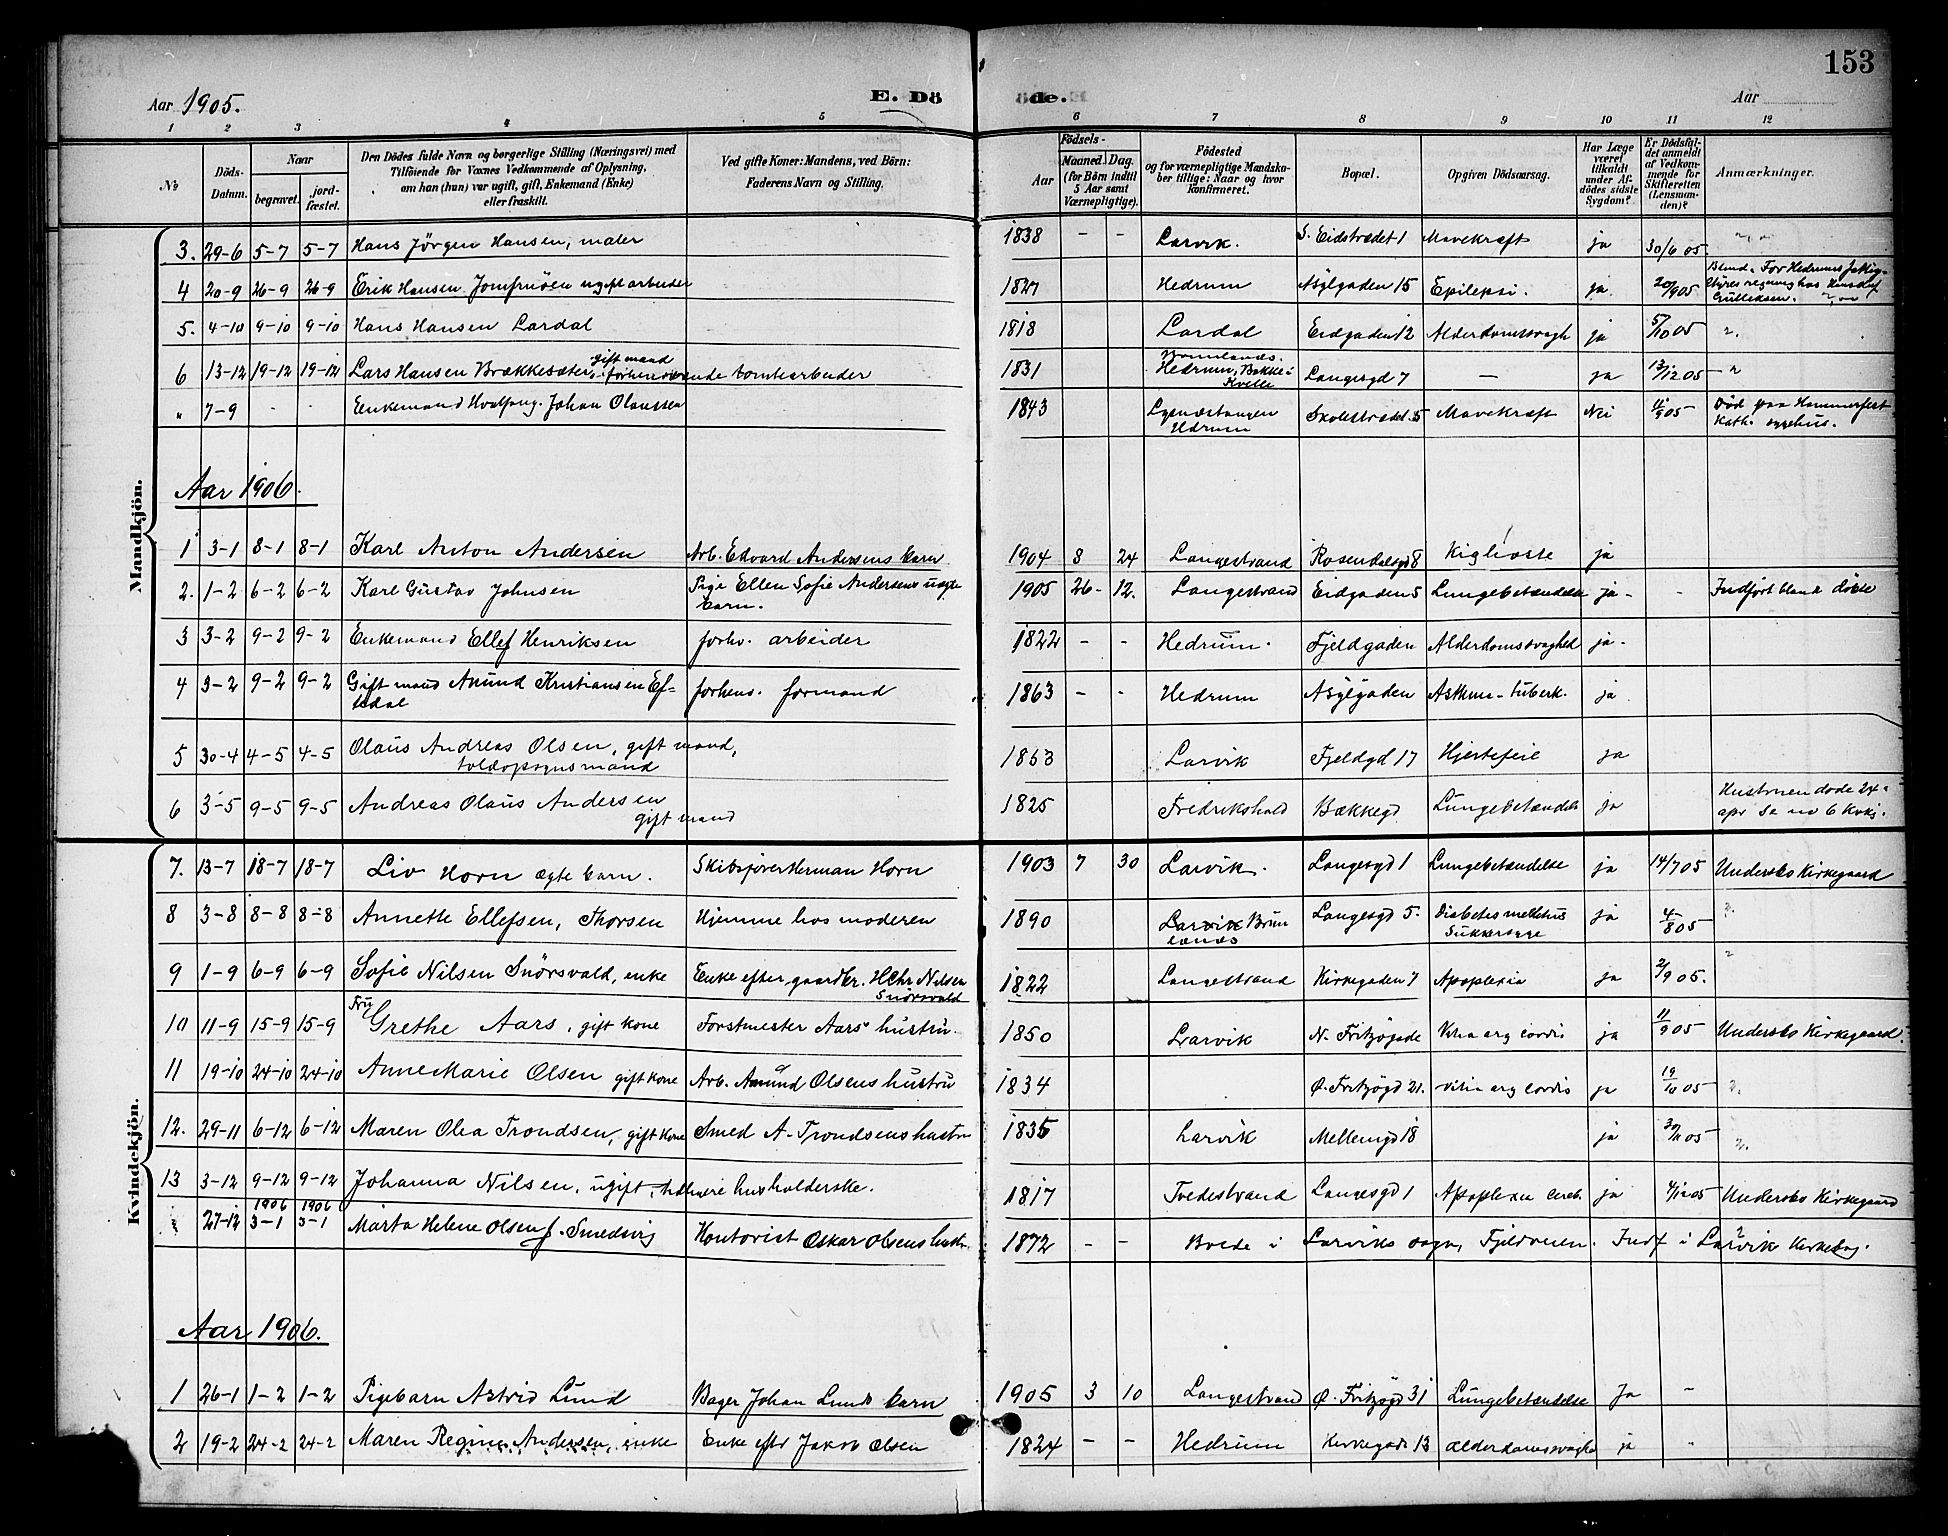 153
Aar 1905. E. Dö de. Aar
1 2 3 4 5 6 7 8 9 10 11 12
№ Döds-Datum. Naar begravet. jord-fæstet. Den Dödes fulde Navn og borgerlige Stilling (Næringsvei) med Tilföiende for Voxnes Vedkommende af Oplysning, om han (hun) var ugift, gift, Enkemand (Enke) eller fraskilt. Ved gifte Koner: Mandens, ved Börn: Faderens Navn og Stilling. Födsels- Aar Maaned. Dag. (for Börn indtil 5 Aar samt Værnepligtige). Födested og for værnepligtige Mandskaber tillige: Naar og hvor konfirmeret. Bopæl. Opgiven Dödsaarsag. Har Læge været tilkaldt under Afdödes sidste Sygdom? Er Dødsfaldet anmeldt af Vedkommende for Skifteretten (Lensmanden)? Anmærkninger.
Mandkjön.
3. 29-6 5-7 5-7 Hans Jörgen Hansen, maler 1838 - - Larvik. S. Eidstrædet 1 Mavekræft ja 30/6 05
4 20-9 26-9 26-9 Erik Hansen Jomfruöen ugift arbeider 1827 Hedrum Asylgaden 15 Epilepsi. ja 20/9 05 Blind. For Hedrums
5. 4-10 9-10 9-10 Hans Hansen Lardal 1818 Lardal Eidgaden 12 Alderdomssvagh ja 5/10 05 "
6 13-12 19-12 19-12 Lars Hansen Brækkesæter gift mand forhenværende tomtearbeider 1831 Hedrum, Bakke i Kvelle Langesgd 7 - ja 13/12 05 "
" 7-9 - - Enkemand Hvalfang. Johan Olaussen 1843 Hedrum Skolestrædet 5 Mavekræft Nei 11/9 05 Död paa Hammerfest Kath. sygehus.
Aar 1906.
1 3-1 8-1 8-1 Karl Anton Andersen Arb. Edvard Andersens barn 1904 8 24 Langestrand Rosendalsgd 8 Kighoste ja
2. 1-2 6-2 6-2 Karl Gustav Johnsen Pige Ellen Sofie Andersens uægte barn. 1905 26- 12. Langestrand Eidgaden 5 Lungebetændelse ja - - Indfört blandt döbte
3 3-2 9-2 9-2 Enkemand Ellef Henriksen forhv. arbeider 1822 - - Hedrum. Fjeldgaden Alderdomssvaghed ja -
4 3-2 9-2 9-2 Gift mand Amund Kristiansen Eftedal forhens. formand 1863 - - Hedrum Asylgaden Asthma - tuberk. ja
5 30-4 4-5 4-5 Olaus Andreas Olsen, gift mand, toldopsynsmand 1853 Larvik Fjeldgd 17 Hjertefeil ja
6 3-5 9-5 9-5 Andreas Olaus Andersen gift mand 1825 Fredrikshald Bækkegd Lungebetændels ja Hustruen döde 24- apr Se no 6 Kvkj.
Kvindekjön.
7. 13-7 18-7 18-7 Liv Horn ægte barn. Skibsförer Herman Horn 1903 7 30 Larvik. Langesgd 1 Lungebetændelse ja 14/7 05 Undersbo Kirkegaard
8 3-8 8-8 8-8 Annette Ellefsen, Thorsen Hjemme hos moderen 1890 Larvik Brunlanes Langesgd 5. Diabetes mellitus Sukkersyge ja 4/8 05 "
9 1-9 6-9 6-9 Sofie Nilsen Snörsvald, enke Enke efter gaardbr. H Chr Nilsen Snörsvald 1822 Langestrand Kirkegaden 7 Apoplexia ja 2/9 05. "
10 11-9 15-9 15-9 Fru Grethe Aars, gift kone Forstmester Aars' hustru. 1850 Larvik N. Fritzögade Vitia org cordis ja 11/9 05 Undersbo Kirkegaard.
11 19-10 24-10 24-10 Anne Marie Olsen gift kone Arb. Amund Olsens hustru 1834 Ø. Fritzögd 21. vitia org cordis ja 19/10 05 "
12. 29-11 6-12 6-12 Maren Olea Trondsen, gift kone Smed A. Trondsens hustru 1835 Larvik Mellemgd 18 ja 30/11 05 "
13 3-12 9-12 9-12 Johanna Nilsen, ugift, tidligere husholderske. 1817 Tvedestrand Langesgd 1 Apoplexia cereb. ja 4/12 05 Undersbo Kirkegaard
" 27-12 1906 3-1 1906 3-1 Marta Helene Olsen f. Smedsvig Kontorist Oskar Olsens hustr. 1872 - - Boede i Larviks sogn, Fjeldveien. Indf i Larvik Kirkebog.
Aar 1906.
1 26-1 1-2 1-2 Pigebarn Astrid Lund Bager Johan Lunds barn 1905 3 10 Langestrand Ø. Fritzögd 31 Lungebetændelse Ja -
2 19-2 24-2 24-2 Maren Regine Andersen, enke Enke efter Jakob Olsen 1824 - - Hedrum Kirkegade 13 Alderdomssvaghe ja "